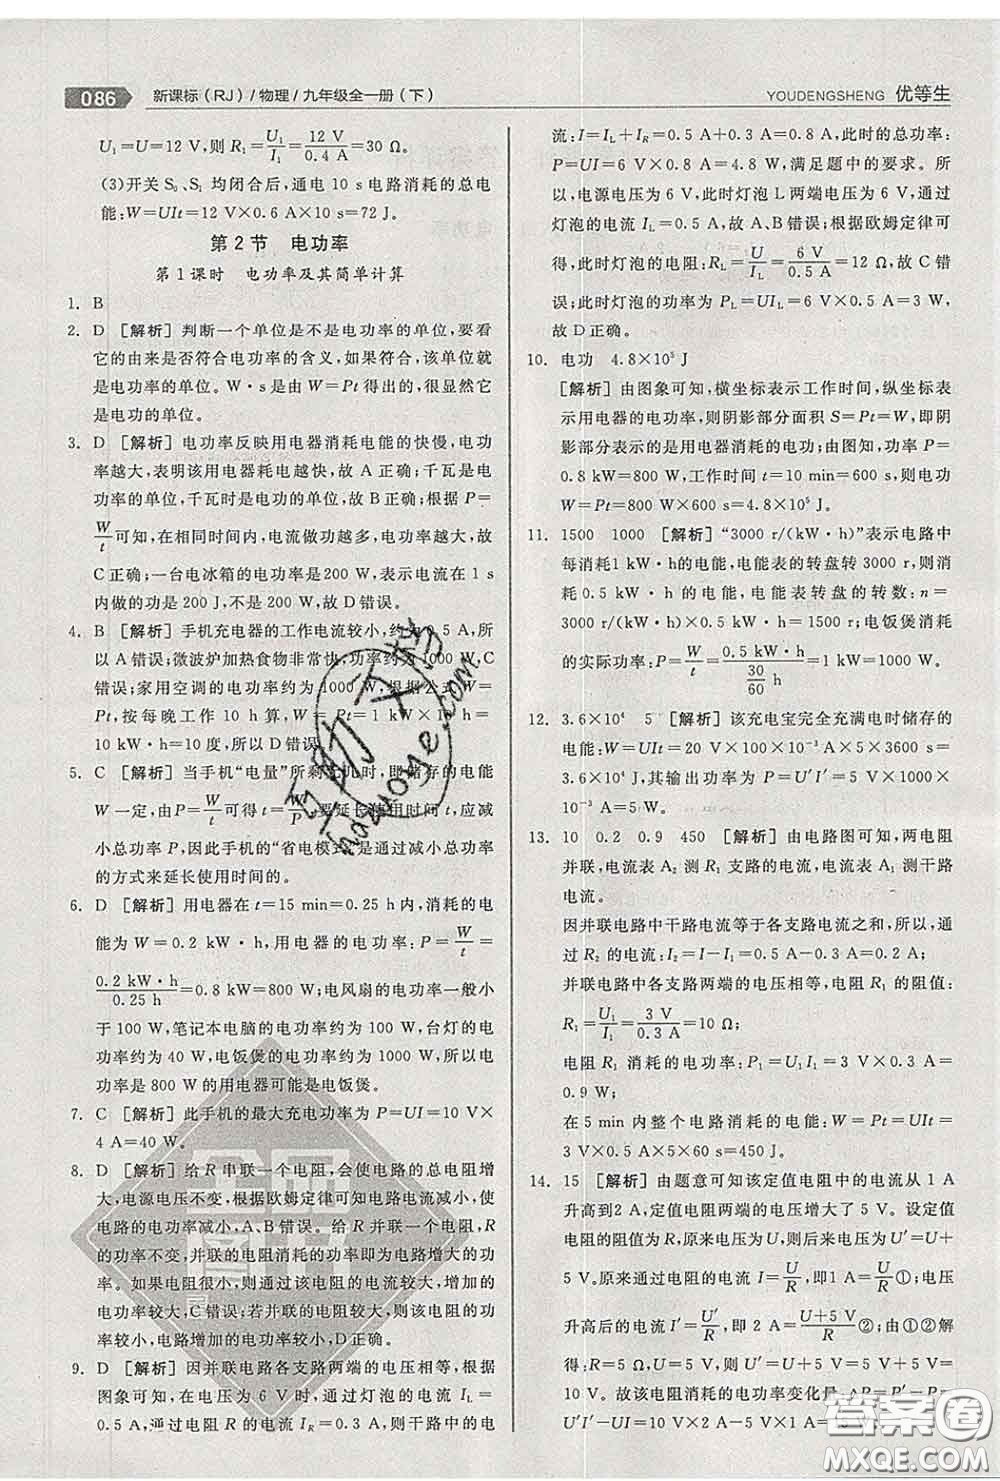 086 新课标(RJ)/物理/九年级全一册(下)
YOUDENGSHENG 优等生
U₁=U=12 V,则 R₁=U₁/I₁=12 V/0.4 A=30 Ω.
(3)开关 S₀、S₁ 均闭合后,通电 10 s电路消耗的总电
能:W=UIt=12 V×0.6 A×10 s=72 J。
第2节 电功率
第1课时 电功率及其简单计算
1. B
2. D [解析] 判断一个单位是不是电功率的单位,要看
它的由来是否符合电功率的含义,如果符合,该单位就
是电功率的单位。W·s是根据 W=Pt 得出的,很显然它
是电功的单位。
3. D [解析] 电功率反映用电器消耗电能的快慢,电功
率越大,表明该用电器耗电越快,故 A 正确;千瓦是电
功率的单位,千瓦时是电功的单位,故 B正确;根据 P=
W/t可知,在相同时间内,电流做功越多,电功率越大,故
C正确;一台电冰箱的电功率是200 W,表示电流在 1 s
内做的功是 200 J,不是 200 W,故 D错误。
4. B [解析] 手机充电器的工作电流较小,约0.5 A,所
以 A错误;微波炉加热食物非常快,功率约1000 W,C
错误;家用空调的电功率约为 1000 W,根据公式 W=
Pt,按每晚工作 10 h算,W=Pt=1 kW×10 h=
10 kW·h;所以 D错误。
5. C [解析] 当手机“电量”所剩无几时,即储存的电能
W一定,由P=W/t可得 t=W/P,要延长使用时间 t,应减
小总功率 P,因此手机的“省电模式”是通过减小总功率
的方式来延长使用时间的。
6. D [解析] 用电器在 t=15 min=0.25 h内,消耗的电
能为 W=0.2 kW·h,用电器的电功率:P=W/t=
0.2 kW·h/0.25 h=0.8 kW=800 W;电风扇的电功率一般小
于 100 W,笔记本电脑的电功率约为 100 W,台灯的电功
率约为 40 W,电饭煲的电功率约为 1000 W,所以电功
率是 800 W的用电器可能是电饭煲。
7. C [解析] 此手机的最大充电功率为 P=UI=10 V×
4 A=40 W。
8. D [解析] 给 R 串联一个电阻,会使电路的总电阻增
大,电源电压不变,根据欧姆定律可知电路电流减小,使
电路的电功率减小,A、B错误。给 R 并联一个电阻,R
的功率不变,并联的电阻消耗的功率即为电路增大的功
率。如果电阻阻值很小,则通过该电阻的电流较大,电
功率较大,C错误;若并联的电阻较大,则该电阻的电功
率较小,电路增大的电功率就较小,D正确。
9. D [解析] 因并联电路各支路两端的电压相等,根据
图象可知,在电压为 6 V时,通过灯泡的电流 I_L=
0.5 A,通过电阻 R 的电流 I_R=0.3 A,则干路中的电
流:I=I_L+I_R=0.5 A+0.3 A=0.8 A,此时的总功率:
P=UI=6 V×0.8 A=4.8 W,满足题中的要求。所
以,电源电压为 6 V,此时灯泡 L 两端电压为 6 V,通过
灯泡的电流 I_L=0.5 A,故 A、B错误;根据欧姆定律可
得,此时灯泡的电阻:R_L=U/I_L=6 V/0.5 A=12 Ω,故 C 错
误;此时灯泡的功率为 P_L=UI_L=6 V×0.5 A=3 W,
故D正确。
10. 电功 4.8×10⁵ J
[解析] 由图象可知,横坐标表示工作时间,纵坐标表
示用电器的电功率,则阴影部分面积 S=Pt=W,即阴
影部分表示的是用电器消耗的电功;由图知,功率 P=
0.8 kW=800 W,工作时间 t=10 min=600 s,则电功
W=Pt=800 W×600 s=4.8×10⁵ J。
11. 1500 1000 [解析] “3000 r/(kW·h)”表示电路中
每消耗1 kW·h的电能,电能表的转盘转 3000 r,则消
耗0.5 kW·h 的电能,电能表转盘的转数:n=
3000 r/(kW·h)×0.5 kW·h=1500 r;电饭煲消耗
的实际功率:P=W/t=0.5 kW·h/(30/60 h)=1 kW=1000 W。
12. 3.6×10⁴ 5 [解析] 该充电宝完全充满电时储存的
电能:W=UIt=20 V×100×10⁻³ A×5×3600 s=
3.6×10⁴ J,其输出功率为 P=U′I′=5 V×1000×
10⁻³ A=5 W。
13. 10 0.2 0.9 450 [解析] 由电路图可知,两电阻
并联,电流表 A₂ 测 R₁ 支路的电流,电流表 A₁ 测干路
电流。
因并联电路中干路电流等于各支路电流之和,所以,通
过 R₂ 的电流:I₂=I-I₁=0.5 A-0.3 A=0.2 A;
并联电路中各支路两端的电压相等,电阻 R₁ 的阻值:
R₁=U₁/I₁=3 V/0.3 A=10 Ω;
电阻 R₁ 消耗的电功率:P₁=U₁I₁=3 V×0.3 A=
0.9 W;
在 5 min内整个电路消耗的电能:W=Pt=UIt=
3 V×0.5 A×5×60 s=450 J。
14. 15 [解析] 由题意可知该定值电阻中的电流从 1 A
升高到2 A时,定值电阻两端的电压增大了 5 V。设定值
电阻的阻值为R,原来两端的电压为 U,则U′=U+
5 V。原来通过电阻的电流 I=U/R,即1 A=U/R①;电压
升高后的电流 I′=U′/R,即2 A=(U+5 V)/R②;由①②解
得:R=5 Ω,U=5 V;则 U′=U+5 V=5 V+5 V=
10 V。故该电阻消耗的电功率变化量 ΔP=P′-P=
U′I′-UI=10 V×2 A-5 V×1 A=15 W。
互助文档
huzuoye.com
答案圈
MXQE.COM